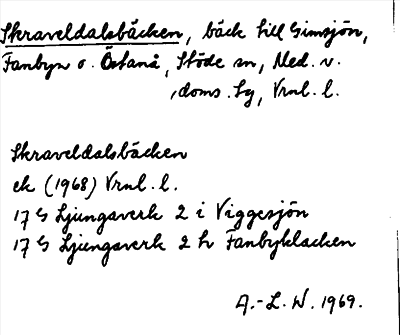 Skraveldalsbäcken, bäck till Gimsjön,
Fanbyn o. Östanå, Stöde sn, Med. v.
doms. tg, Vrnl. l.
Skraveldalsbäcken
ek (1968) Vrnl. l.
17 G Ljungaverk 2 i Viggesjön
17 G Ljungaverk 2 h Fanbyklacken
A.-L. W. 1969.